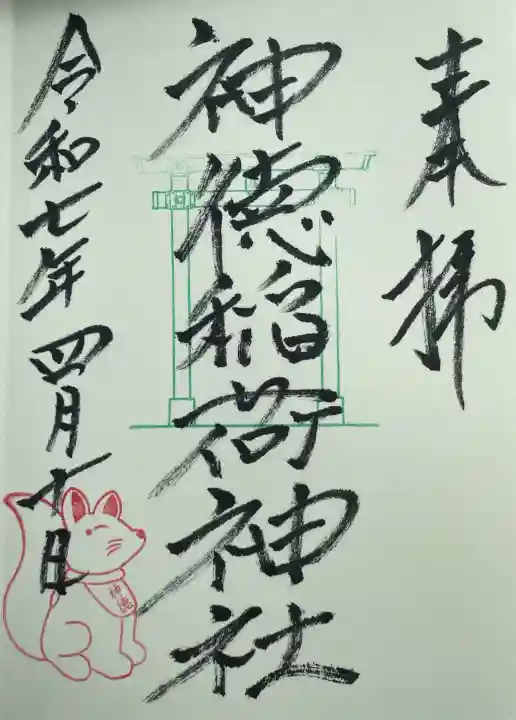 奉拝
神徳稲荷神社
令和七年四月十日
神徳